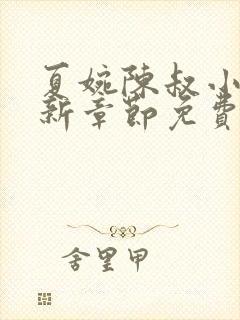 夏婉陈叔小
新章節免費
舍里甲